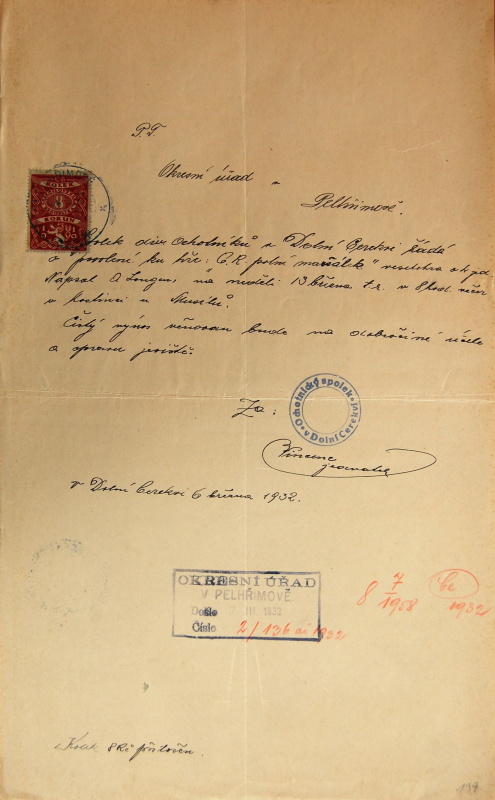 P.T.
Okresní úřad v
Pelhřimově.
KOLEK
8
KORUN
Spolek div. Ochotníků v Dolní Cerekvi žádá
o povolení ku hře: C. k. polní maršálek" veselohra o
Napsal A. Longen, na neděli 13 března t.r. v 8 hod. večer
v hostinci u
Čistý výnos věnován bude na dobročinné účele
a opravu jeviště.
Za:
Ochotnický spolek v Dolní Cerekvi
Vincenc
jednatel
v Dolní Cerekvi 6 března 1932.
OKRESNÍ ÚŘAD
V PELHŘIMOVĚ
Došlo 7 III. 1932
Číslo 2/136 ai 1932
8 7/1958
1932
Kolek 8 Kč přiložen.